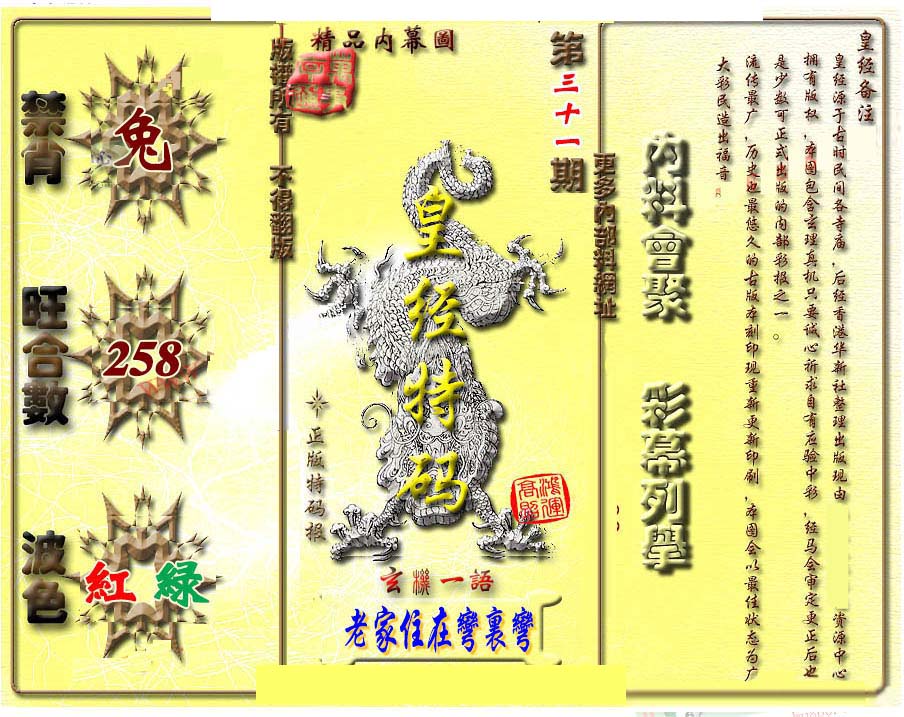 精品內幕圖
第三十一期
版權所有 不得翻版
更多內部料網址
禁肖
兔
旺合數
258
波色
紅 綠
皇经特码
正版特码报
鴻運高照
玄機一語
老家住在彎裏彎
內料會聚 彩幕列舉
皇经备注
皇经源于古时民间各寺庙,后经香港华新社整理出版现由 资源中心
拥有版权,本图包含玄理真机只要诚心祈求自有应验中彩,经马会审定更正后也
是少数可正式出版的内部彩报之一。
流传最广,历史也最悠久的古版本刻印现重新更新印刷,本图会以最佳状态为广
大彩民造出福音